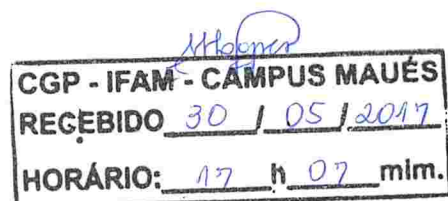 CGP - IFAM - CAMPUS MAUÉS
RECEBIDO 30 / 05 / 2017
HORÁRIO: 17 h 07 mim.